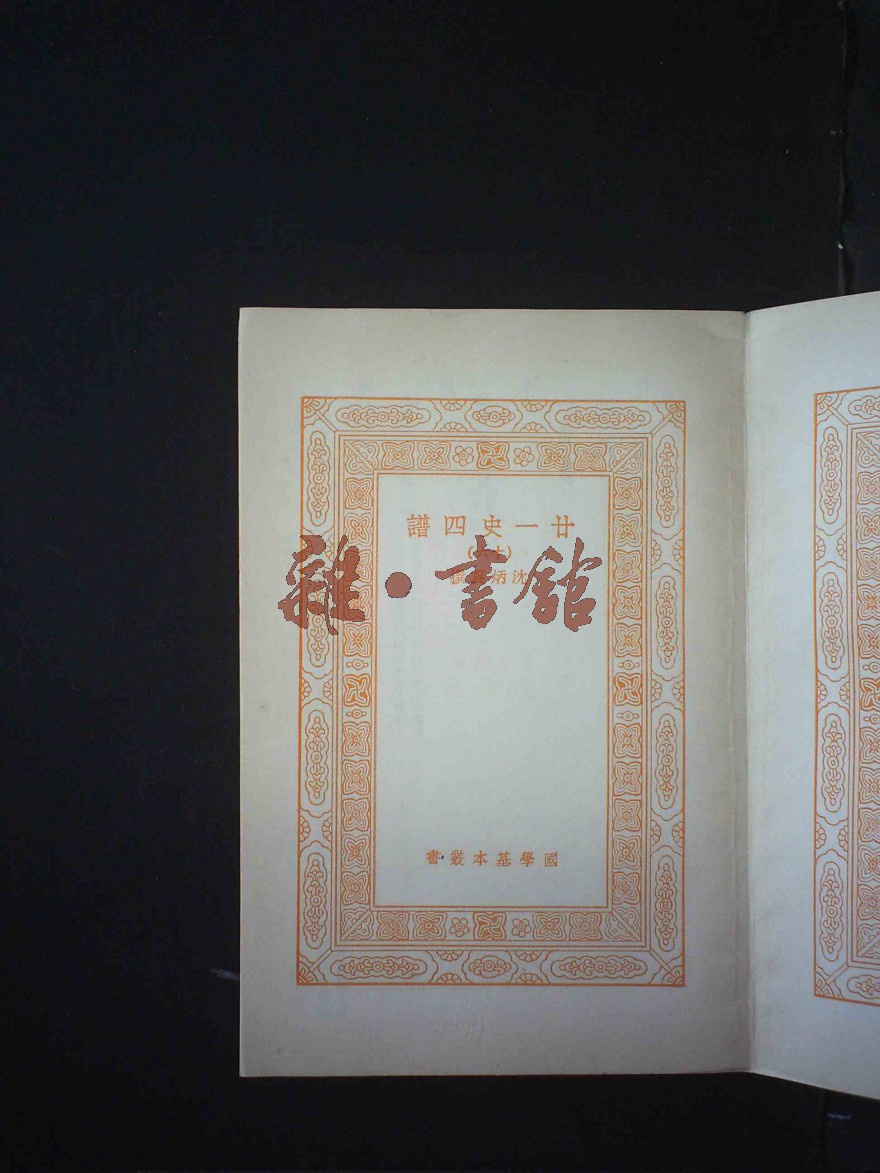 廿一史四譜
沈炳
國學基本叢書
雜·書館